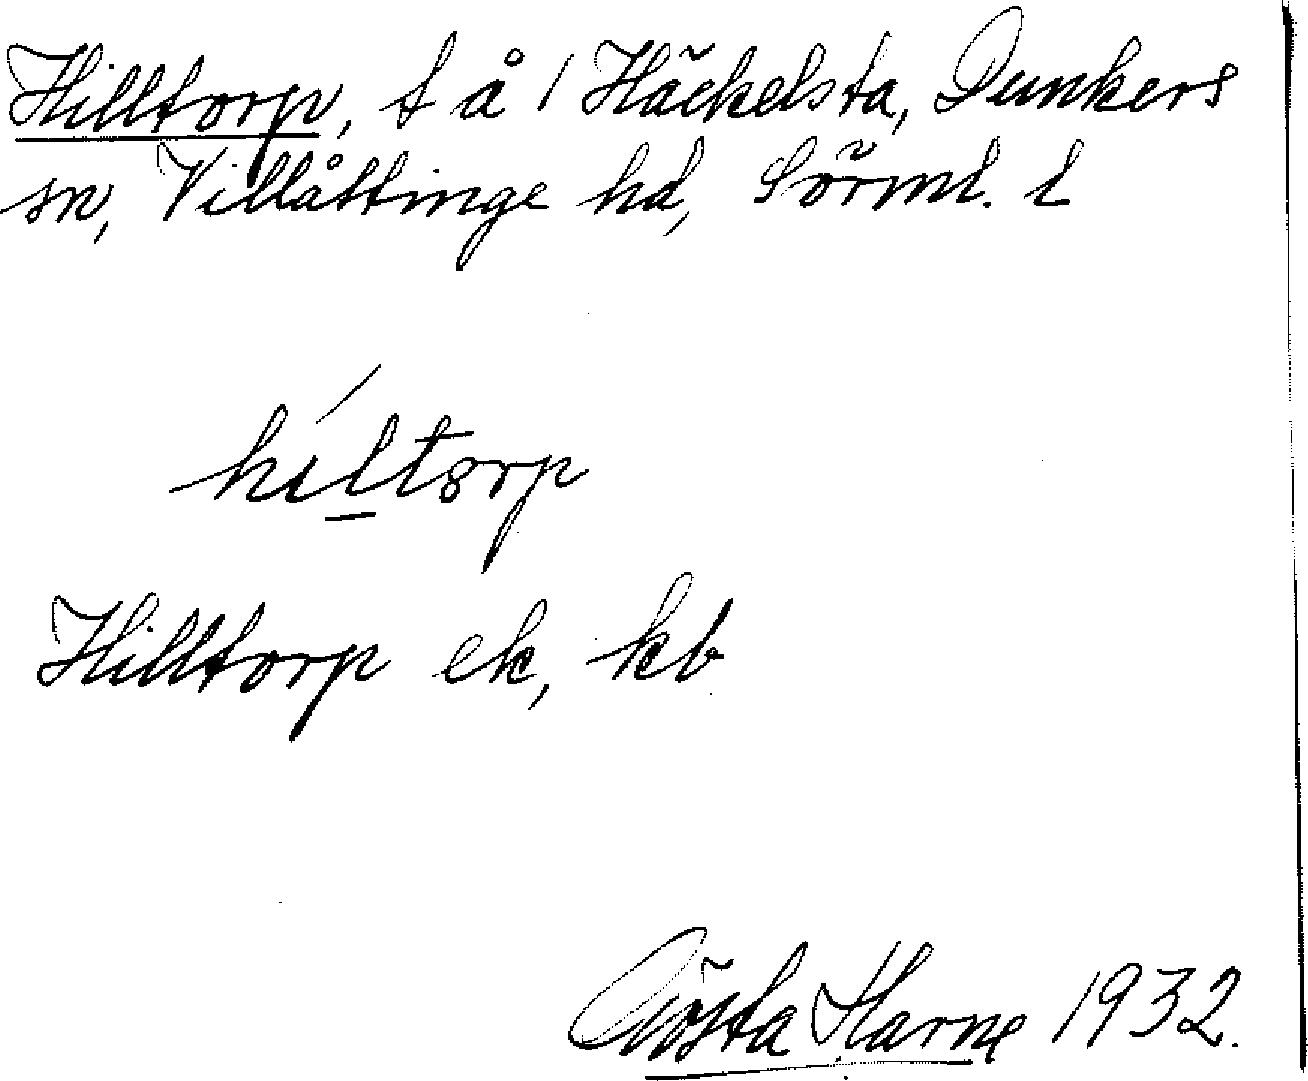 Hilltorp, t å 1 Häckelsta, Dunkers
sn, Villåttinge hd, Sörml. l
híltorp
Hilltorp ek, kb
Gösta Harne 1932.